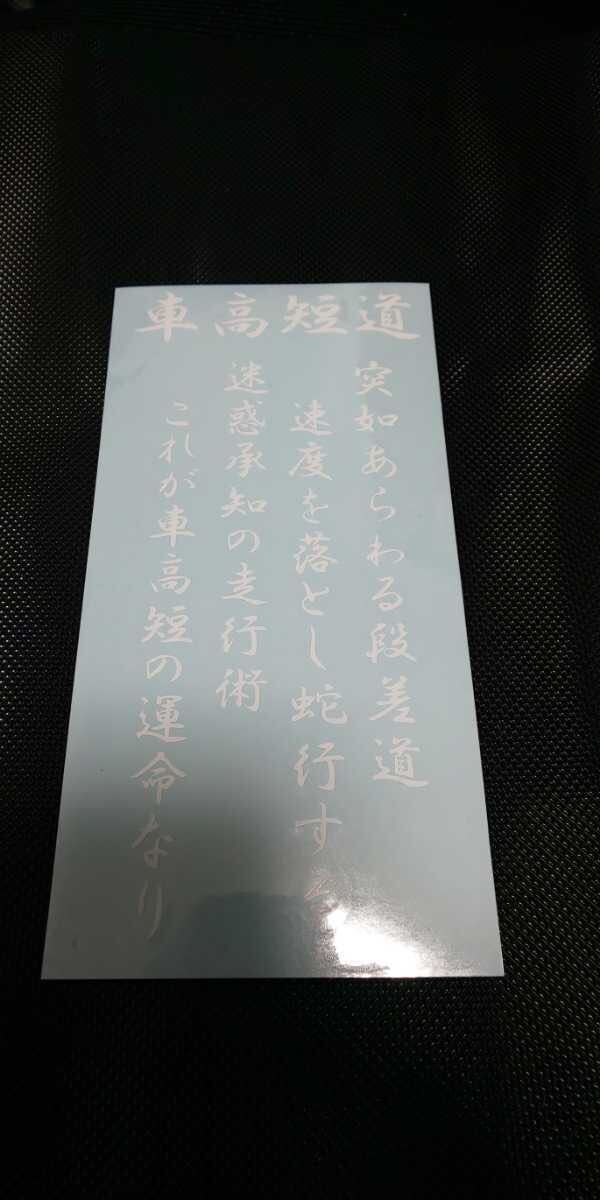 車高短道
突如あらわる段差道
速度を落とし蛇行する
迷惑承知の走行術
これが車高短の運命なり